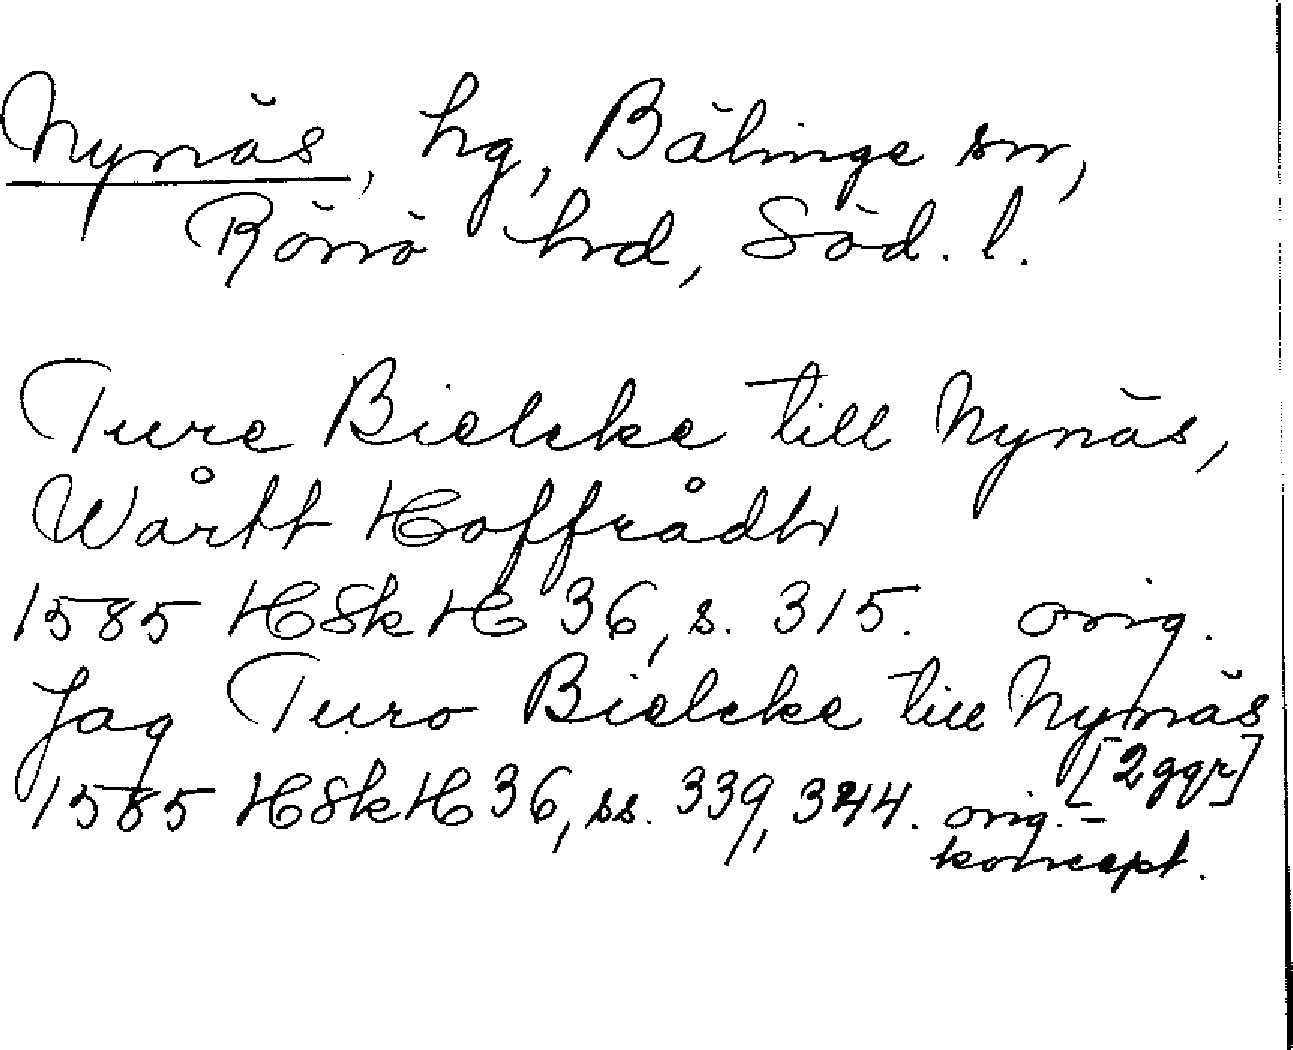 Nynäs, hg, Bälinge sn,
Rönö hd, Söd. l.
Ture Bielcke till Nynäs,
Wårtt Hoffrådh
1585 HSkH 36, s. 315. orig.
Jag Turo Bielcke till Nynäs
[2 ggr]
1585 HSkH 36, ss. 339, 344. orig.-
koncept.